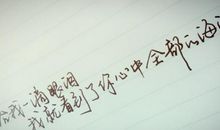 给我一滴眼泪
我就看到了你心中全部的海